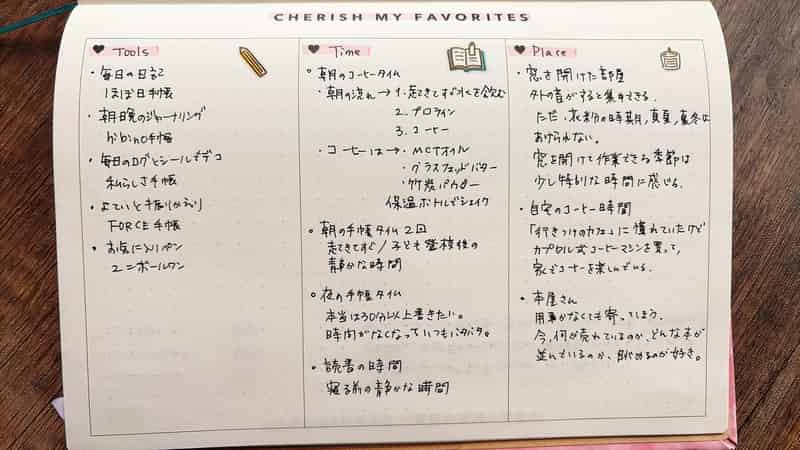 CHERISH MY FAVORITES
♥ Tools
・毎日の日記
ほぼ日手帳
・朝晩のジャーナリング
hibino手帳
・毎日のログとシールでデコ
私らしさ手帳
・よていと振りかえり
FORCE手帳
・お気に入りペン
ユニボールワン
♥ Time
・朝のコーヒータイム
・朝の流れ→1.起きてすぐ水を飲む
2.プロテイン
3.コーヒー
・コーヒーは→・MCTオイル
・グラスフェッドバター
・竹炭パウダー
保温ボトルでシェイク
・朝の手帳タイム2回
起きてきてすぐ/子ども登校後の
静かな時間
・夜の手帳タイム
本当は30分以上書きたい。
時間がなくなっていつもバタバタ。
・読書の時間
寝る前の静かな時間
♥ Place
・窓を開けた部屋
外の音がすると集中できる。
ただ、花粉の時期、真夏、真冬は
あけられない。
窓を開けて作業できる季節は
少し特別な時間に感じる。
・自宅のコーヒー時間
「行きつけのカフェ」に憧れていたけど
カプセル式コーヒーマシンを買って、
家でコーヒーを楽しんでいる。
・本屋さん
用事がなくても寄ってしまう。
今、何が売れているのか、どんな本が
並んでいるのか、眺めるのが好き。